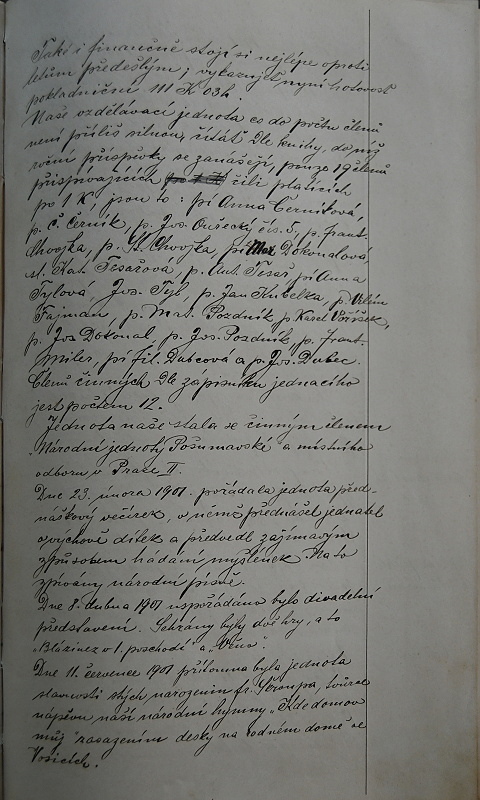 Také i finančně stojí si nejlépe oproti
letům předešlým; vykazujeť nyní hotovost
pokladniční 111 K 63 h.
Naše vzdělávací jednota co do počtu členů
není příliš silnou, čítáť dle knihy, do níž
roční příspěvky se zanášejí, pouze 19 členů
přispívajících čili platících
po 1 K, jsou to: pí Anna Černíková,
p. Č. Černík, p. Jos. Ouřecký čís. 5, p. Frant.
Chvojka, p. St. Chvojka, pí Dokonalová,
sl. Kat. Tesařova, p. Ant. Tesař, pí Anna
Tylová, Jos. Tyl, p. Jan Kubelka, p. Vilém
Fajman, p. Mat. Pozdník, p. Karel Voříšek,
p. Jos Dokonal, p. Jos. Pozdník, p. Frant.
Miler, pí Fil. Dubcová a p. Jos. Dubec.
Členů činných dle zápisníku jednacího
jest počtem 12.
Jednota naše stala se činným členem
„Národní jednoty Pošumavské" a místního
odboru v Praze II.
Dne 23. února 1901. pořádala jednota před-
náškový večírek, v němž přednášel jednatel
o výchově dítek a předvedl zajímavým
způsobem hádání myšlének. Na to
zpívány národní písně.
Dne 8. dubna 1901 uspořádáno bylo divadelní
představení. Sehrány byly dvě hry, a to
„Blázinec v 1. poschodí" a „Věno".
Dne 11. července 1901 přítomna byla jednota
slavnosti stých narozenin fr. Škroupa, tvůrce
nápěvu naší národní hymny „Kde domov
můj" zasazením desky na rodném domě ve
Vosicích.